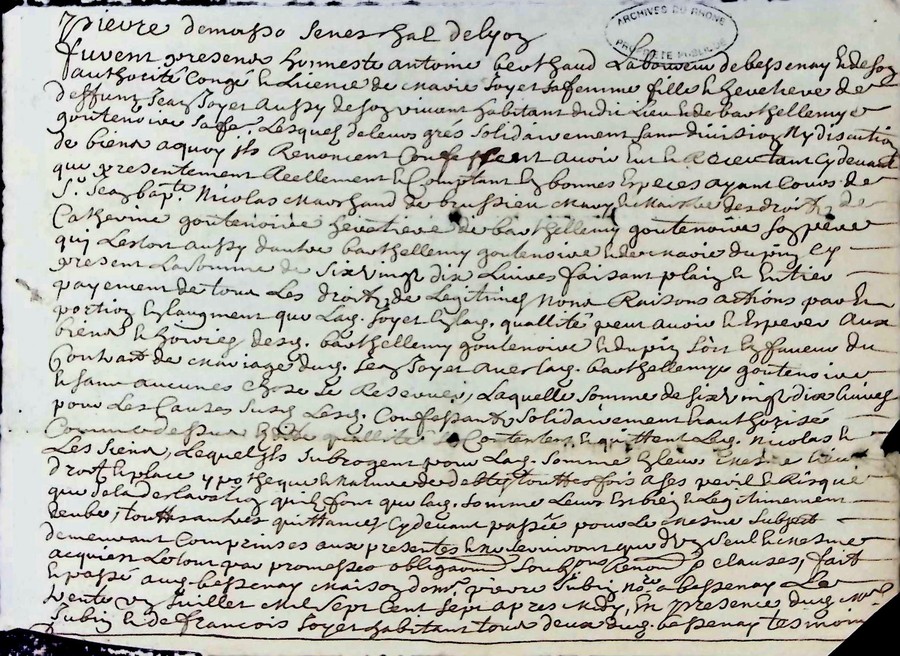 ARCHIVES DU RHONE
PROPRIETE PUBLIQUE
pierre demasso seneschal de lyon
fut present honneste antoine berthaud Laboureur de bessenay & de soy
authorité Congé & Licence de marie soyer sa femme fille & heretiere de
deffunt Jean soyer aussy de son vivant habitant dudit Lieu & de barthellemye
goutenoire sa fe. Lesquels de leurs grés solidairement sans division Ny discution
de biens a quoy ils Renoncent Confessent avoir Eu & Receu tant cy devant
que presentement Reellement & Comptant En bonnes Especes ayant Cours de
Sr. Jean bapte. Nicolas marchand de brussieu mary & maistre des droits de
Catherine goutenoire heretiere de barthellemy goutenoire son pere
qui Leston aussy dautre barthellemy goutenoire & de marie dupin Cy
present La somme de six vingt dix Livres faisant plain & Entier
payement de tous Les droits de Legitimes Noms Raisons actions part &
portion & laugment que Lad. soyer En lad. quallité peut avoir & Esperer aux
biens & hoiries desd. barthellemy goutenoire & dupin soit En faveur du
Contrat de mariage dud. Jean soyer avec lad. barthellemye goutenoire
& sans aucunes chose se Reserver, Laquelle somme de six vingt dix livres
pour Les Causes susd. Lesd. Confessants solidairement & authorisée
Comme dessus & de quallité se Contentent & quittent Led. Nicolas &
Les siens, Lequel ils subrogent pour Lad. somme En leur mesme Lieu
droit & place ypotheque & Nature de debtes touttesfois a ses peril & Risque
que de la declaration quil font que lad. somme Leurs Est bien & Legitimement
deube, touttes autres quittances Cy devant passées pour Le mesme subject
demeurant Comprinses aux presentes & Ne serviront que d'un seul & mesme
acquien Le tout par promesses obligaons soubzons Renons & clauses, fait
& passé aud. bessenay maison de me. pierre Jubin nore a bessenay Le
vente un Juillet mil sept Cent sept apres midy, En presence dud. me.
Jubin & de francois soyer habitant tous deux aud. bessenay tesmoins